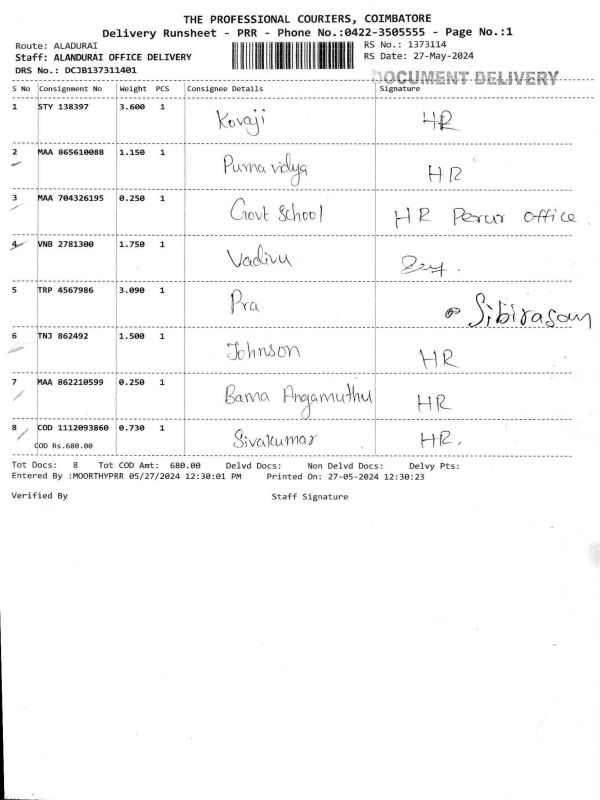 THE PROFESSIONAL COURIERS, COIMBATORE
Delivery Runsheet - PRR - Phone No.:0422-3505555 - Page No.:1
Route: ALADURAI RS No.: 1373114
Staff: ALANDURAI OFFICE DELIVERY RS Date: 27-May-2024
DRS No.: DCJB137311401 DOCUMENT DELIVERY
S No Consignment No Weight PCS Consignee Details Signature
1 STY 138397 3.600 1 Kovaji HR
2 MAA 865610088 1.150 1 Purna vidya HR
3 MAA 704326195 0.250 1 Govt School HR Perur office
4 VNB 2781300 1.750 1 Vadivu
5 TRP 4567986 3.090 1 Pra Sibirasan
6 TNJ 862492 1.500 1 Johnson HR
7 MAA 862210599 0.250 1 Bama Angamuthu HR
8 COD 1112093860 0.730 1 Sivakumar HR.
COD Rs.680.00
Tot Docs: 8 Tot COD Amt: 680.00 Delvd Docs: Non Delvd Docs: Delvy Pts:
Entered By :MOORTHYPRR 05/27/2024 12:30:01 PM Printed On: 27-05-2024 12:30:23
Verified By Staff Signature